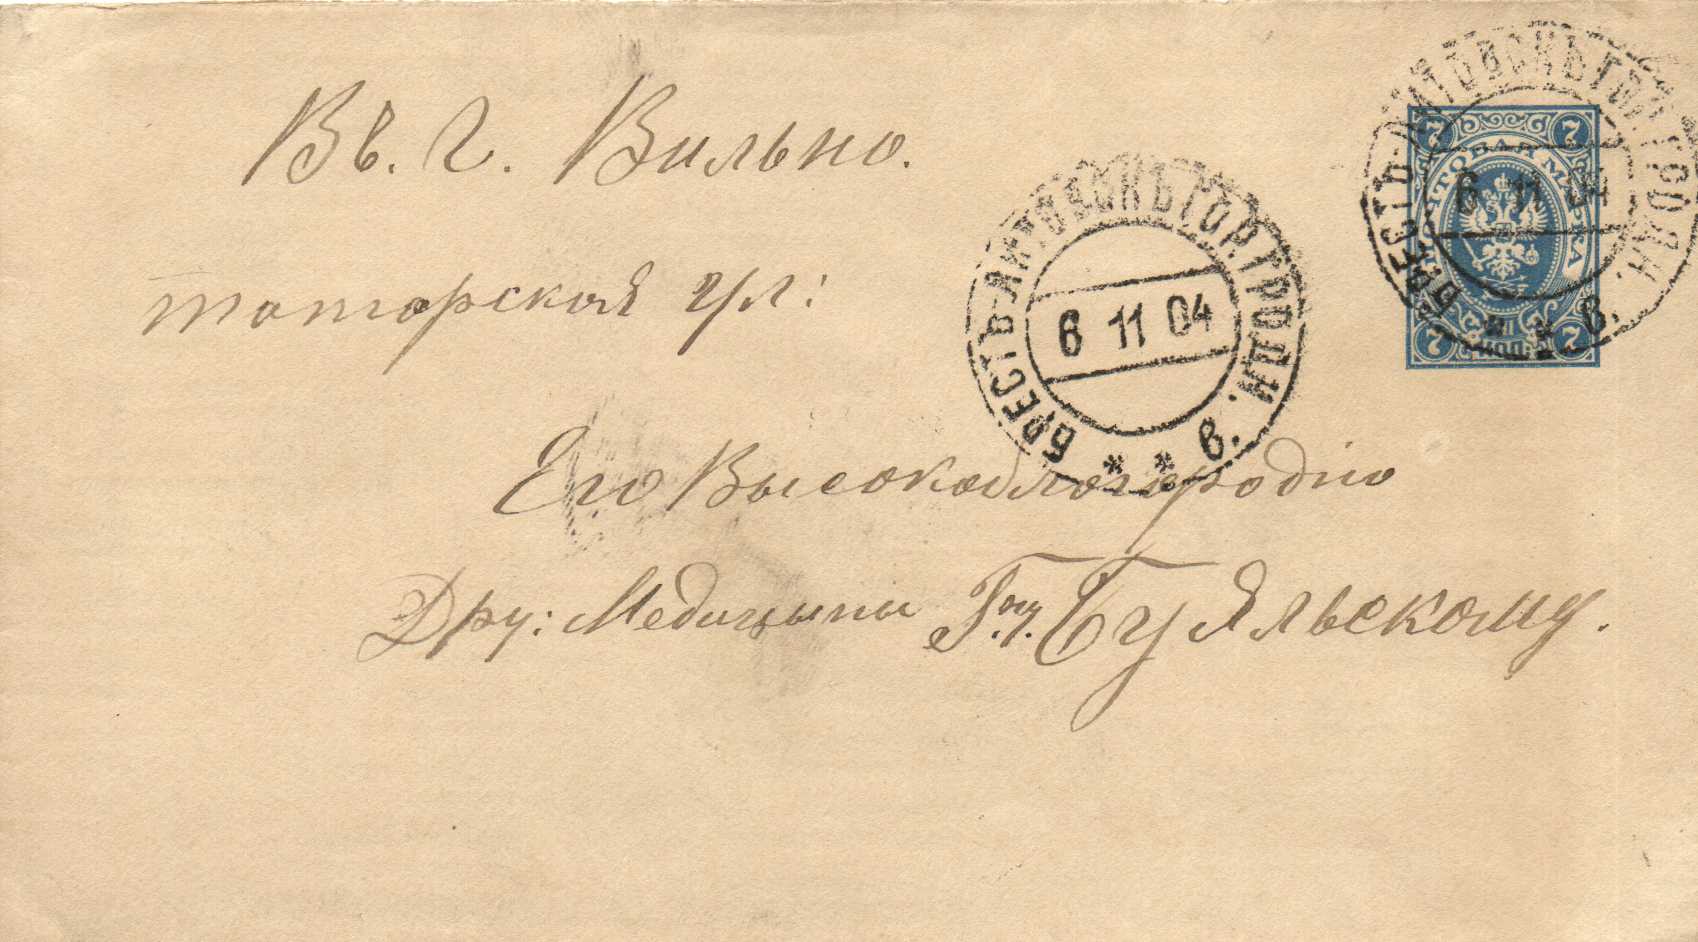 Въ. г. Вильно.
татарская ул:
Его Высокоблагородию
Дру: Медицыны Гну. Буяльскому.
БРЕСТЪ-ЛИТОВСКЪ ГОР. ГРОДН. в.
6 11 04
БРЕСТЪ-ЛИТОВСКЪ ГОР. ГРОДН. в.
6 11 04
ПОЧТОВАЯ МАРКА
7 7
7 КОП. 7